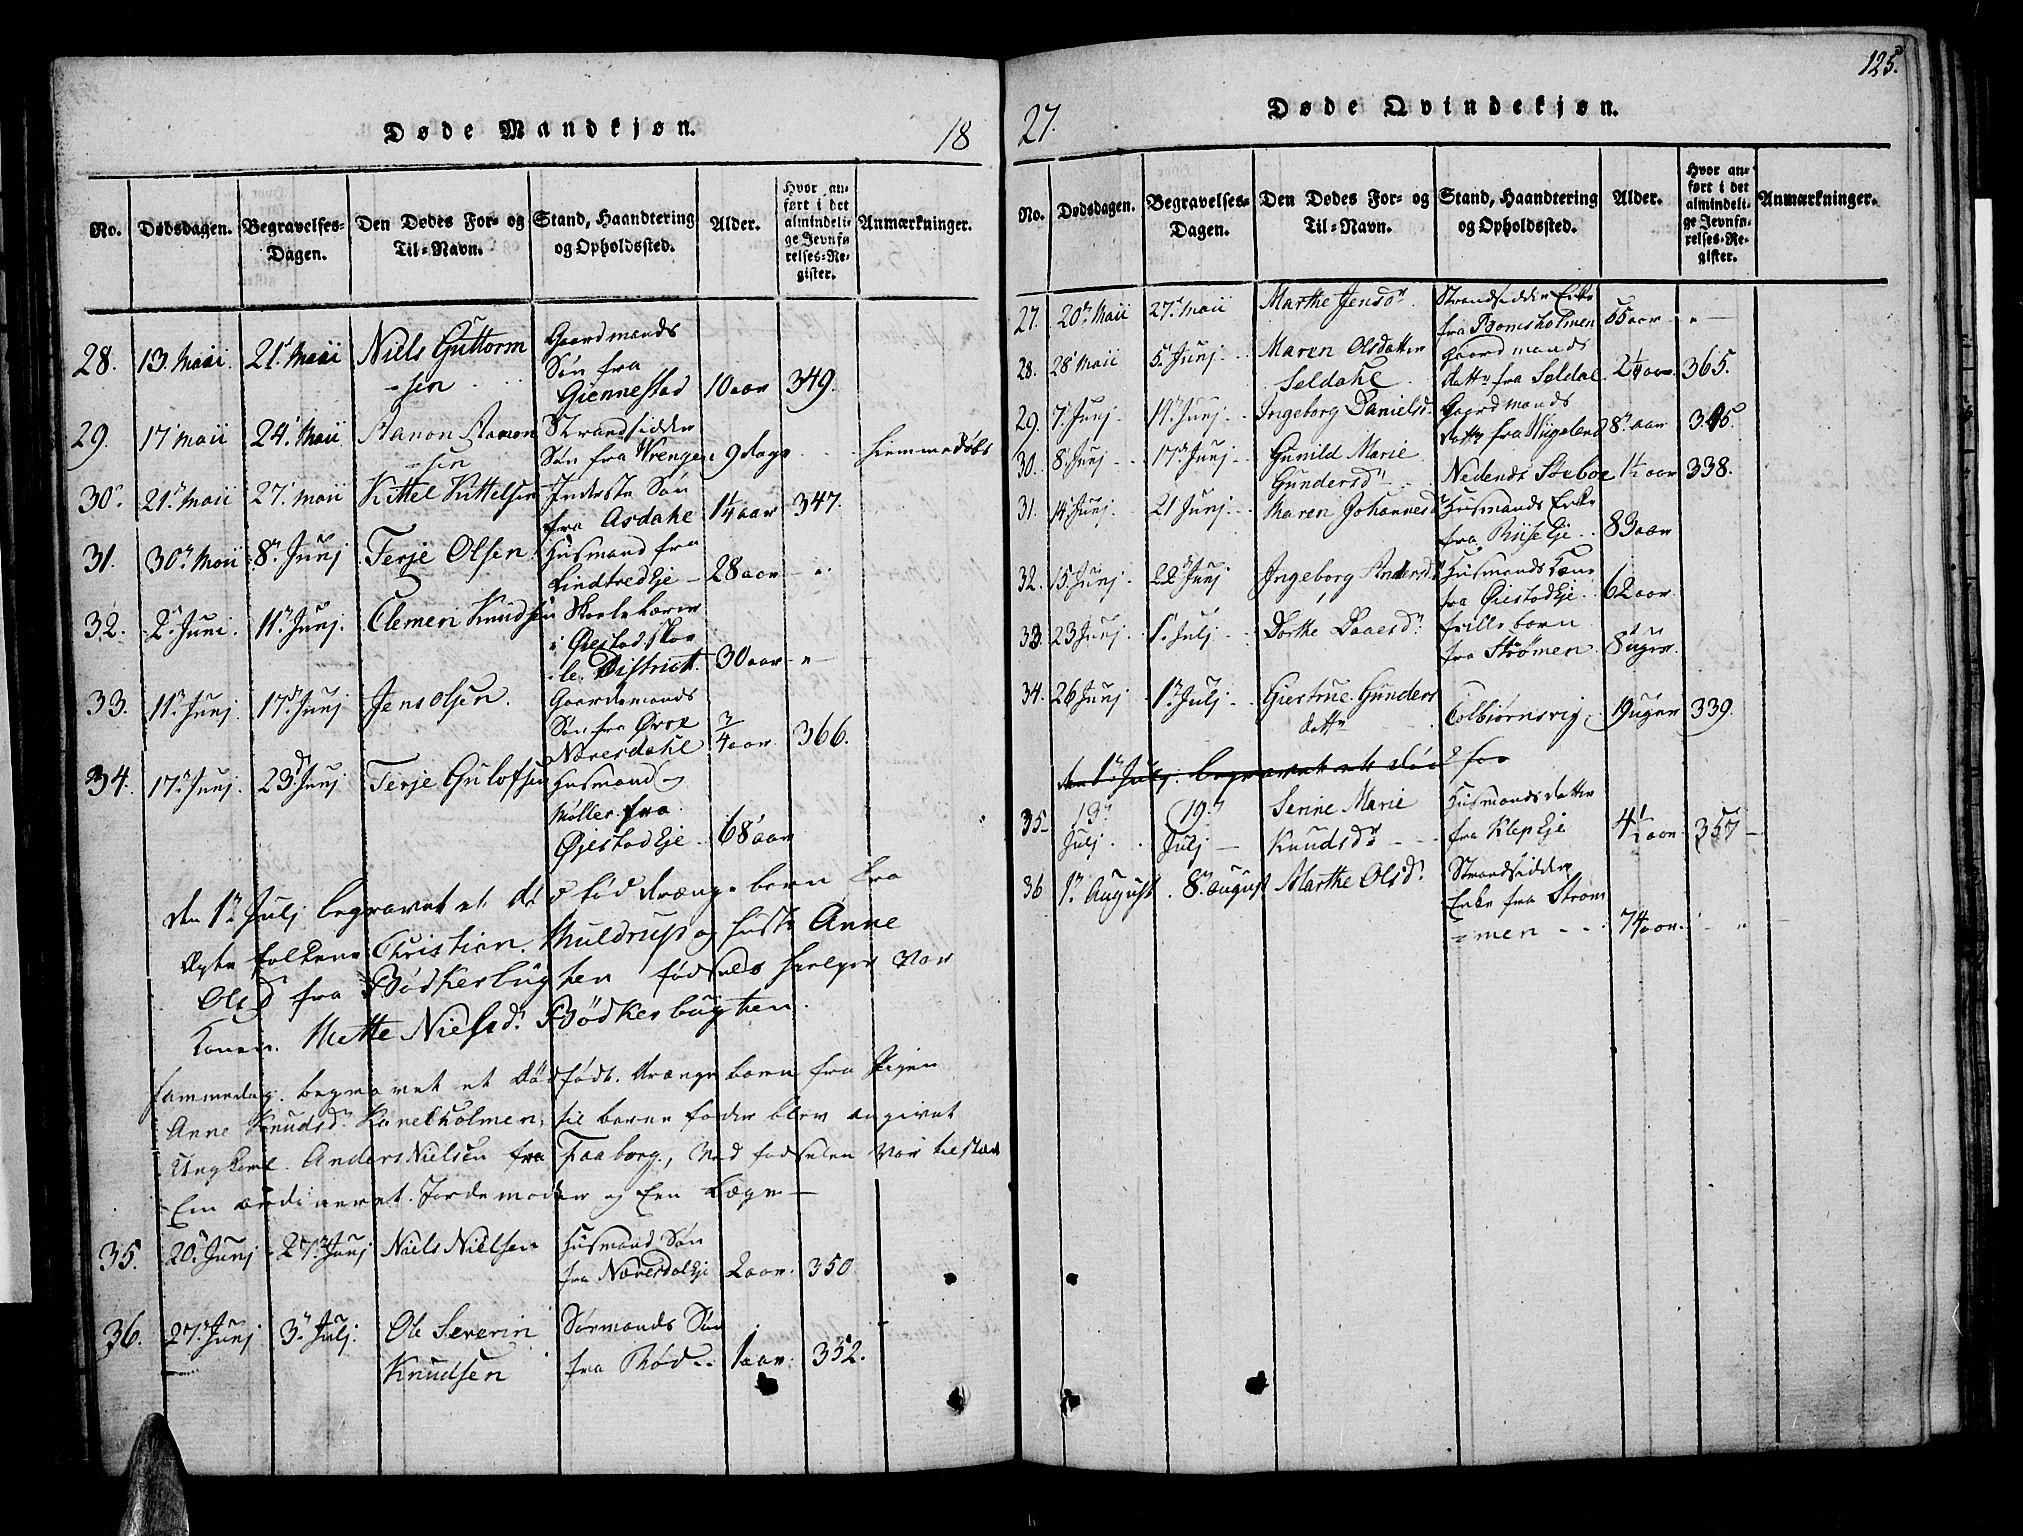 125.
Døde Mandkjøn.
18
No.
Dødsdagen.
Begravelses-
Dagen.
Den Dødes For- og
Til-Navn.
Stand, Haandtering
og Opholdssted.
Alder.
Hvor an-
ført i det
almindeli-
ge Jevnfø-
relses-Re-
gister.
Anmærkninger.
28. 13. Maii 21. Maii Niels Guttorm Gaardmands
-sen Søn fra
Giennestad 10 aar 349.
29. 17 Maii 24. Maii Aanon Aanon Strandsidder
-sen Søn fra Vrengen 9 dage hiemmedøbt
30. 21. Maii 27. Maii Kittel Kittelsen Inderste Søn
fra Asdahl 1¼ aar 347.
31. 30. Maii 8. Junj Terje Olsen Huusmand fra
Lindtved Eje 28 aar "
32. 2. Juni. 11. Junj. Clemen Knudsen Skoleholder
i Øiestad Sko
-le District. 30 aar "
33. 11. Junj. 17. Junj Jens Olsen. Gaardmands
Søn fra Øvre
Næresdahl ¾ aar 366.
34. 17. Junj. 23. Junj Terje Gulofsen Huusmand
Møller fra
Øjestad Eje 68 aar
den 1. Julj begravet et død fød drænge barn fra
Ægte folkene Christian Muldrup og hustr Anne
Olsd fra Bødkerbugten fødsels hielper var
Konen. Mette Nielsd. Bødkerbugten.
Sammedag. begravet et død født. drænge barn fra Pigen
Anne Knudsd. Kanelholmen, til barne fader blev angivet
Ungkarl. Anders Nielsen fra Faaborg, Ved fødselen var tilstæde
Een ordineret. Jordemoder og Een Læge
35. 20. Junj 27. Junj Niels Nielsen Huusmand Søn
fra Næresdal Eje 2 aar. 350
36. 27. Junj 3. Julj. Ole Severin Sørmands Søn
Knudsen fra Rød 1 aar. 352.
27.
Døde Qvindekjøn.
No.
Dødsdagen.
Begravelses-
Dagen.
Den Dødes For- og
Til-Navn.
Stand, Haandtering
og Opholdssted.
Alder.
Hvor an-
ført i det
almindeli-
ge Jevnfø-
relses-Re-
gister.
Anmærkninger.
27. 20. Maii 27. Maii Marthe Jensdr Strandsidder Enke
fra Romsholmen 55 aar "
28. 28 Maii 5. Junj Maren Olsdatter Gaardmands
Seldahl. datter fra Seldal. 365.
29. 7. Junj 14. Junj Ingeborg Danielsd. Gaardmands
datter fra Wiigeland 8 aar 305.
30. 8. Junj 17. Junj Gunild Marie
Gundersdr Nedenes Stoeboe 1½ aar 338.
31. 14. Junj. 21 Junj Maren Johannesdr Huusmands Enke
fra Riis Eje 83 aar
32. 15. Junj 22. Junj Ingeborg Andersdr Huusmands Kone
fra Øiestad Eje. 62 aar
33. 23 Junj 1. Julj Dorthe Laaesdr. frille barn
fra Strømen 8 uger.
34. 26 Junj 1. Julj Giertrue. Gunders
datter Colbiørnsvig 19 uger 339.
den 1. Julj. begravet et død fød
35 13. 19. Serine Marie Huusmands datter
Julj Julj Knudsdr fra Klep Eje 4½ aar 357
36 1. August 8. august Marthe Olsd. Strandsidder
Enke fra Strøm
-men 74 aar. "